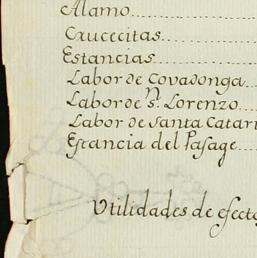 Alamo
Crucecitas
Estancias
Labor de Covadonga
Labor de Sn. Lorenzo
Labor de Santa Catari
Estancia del Pasage
Vtilidades de efecto